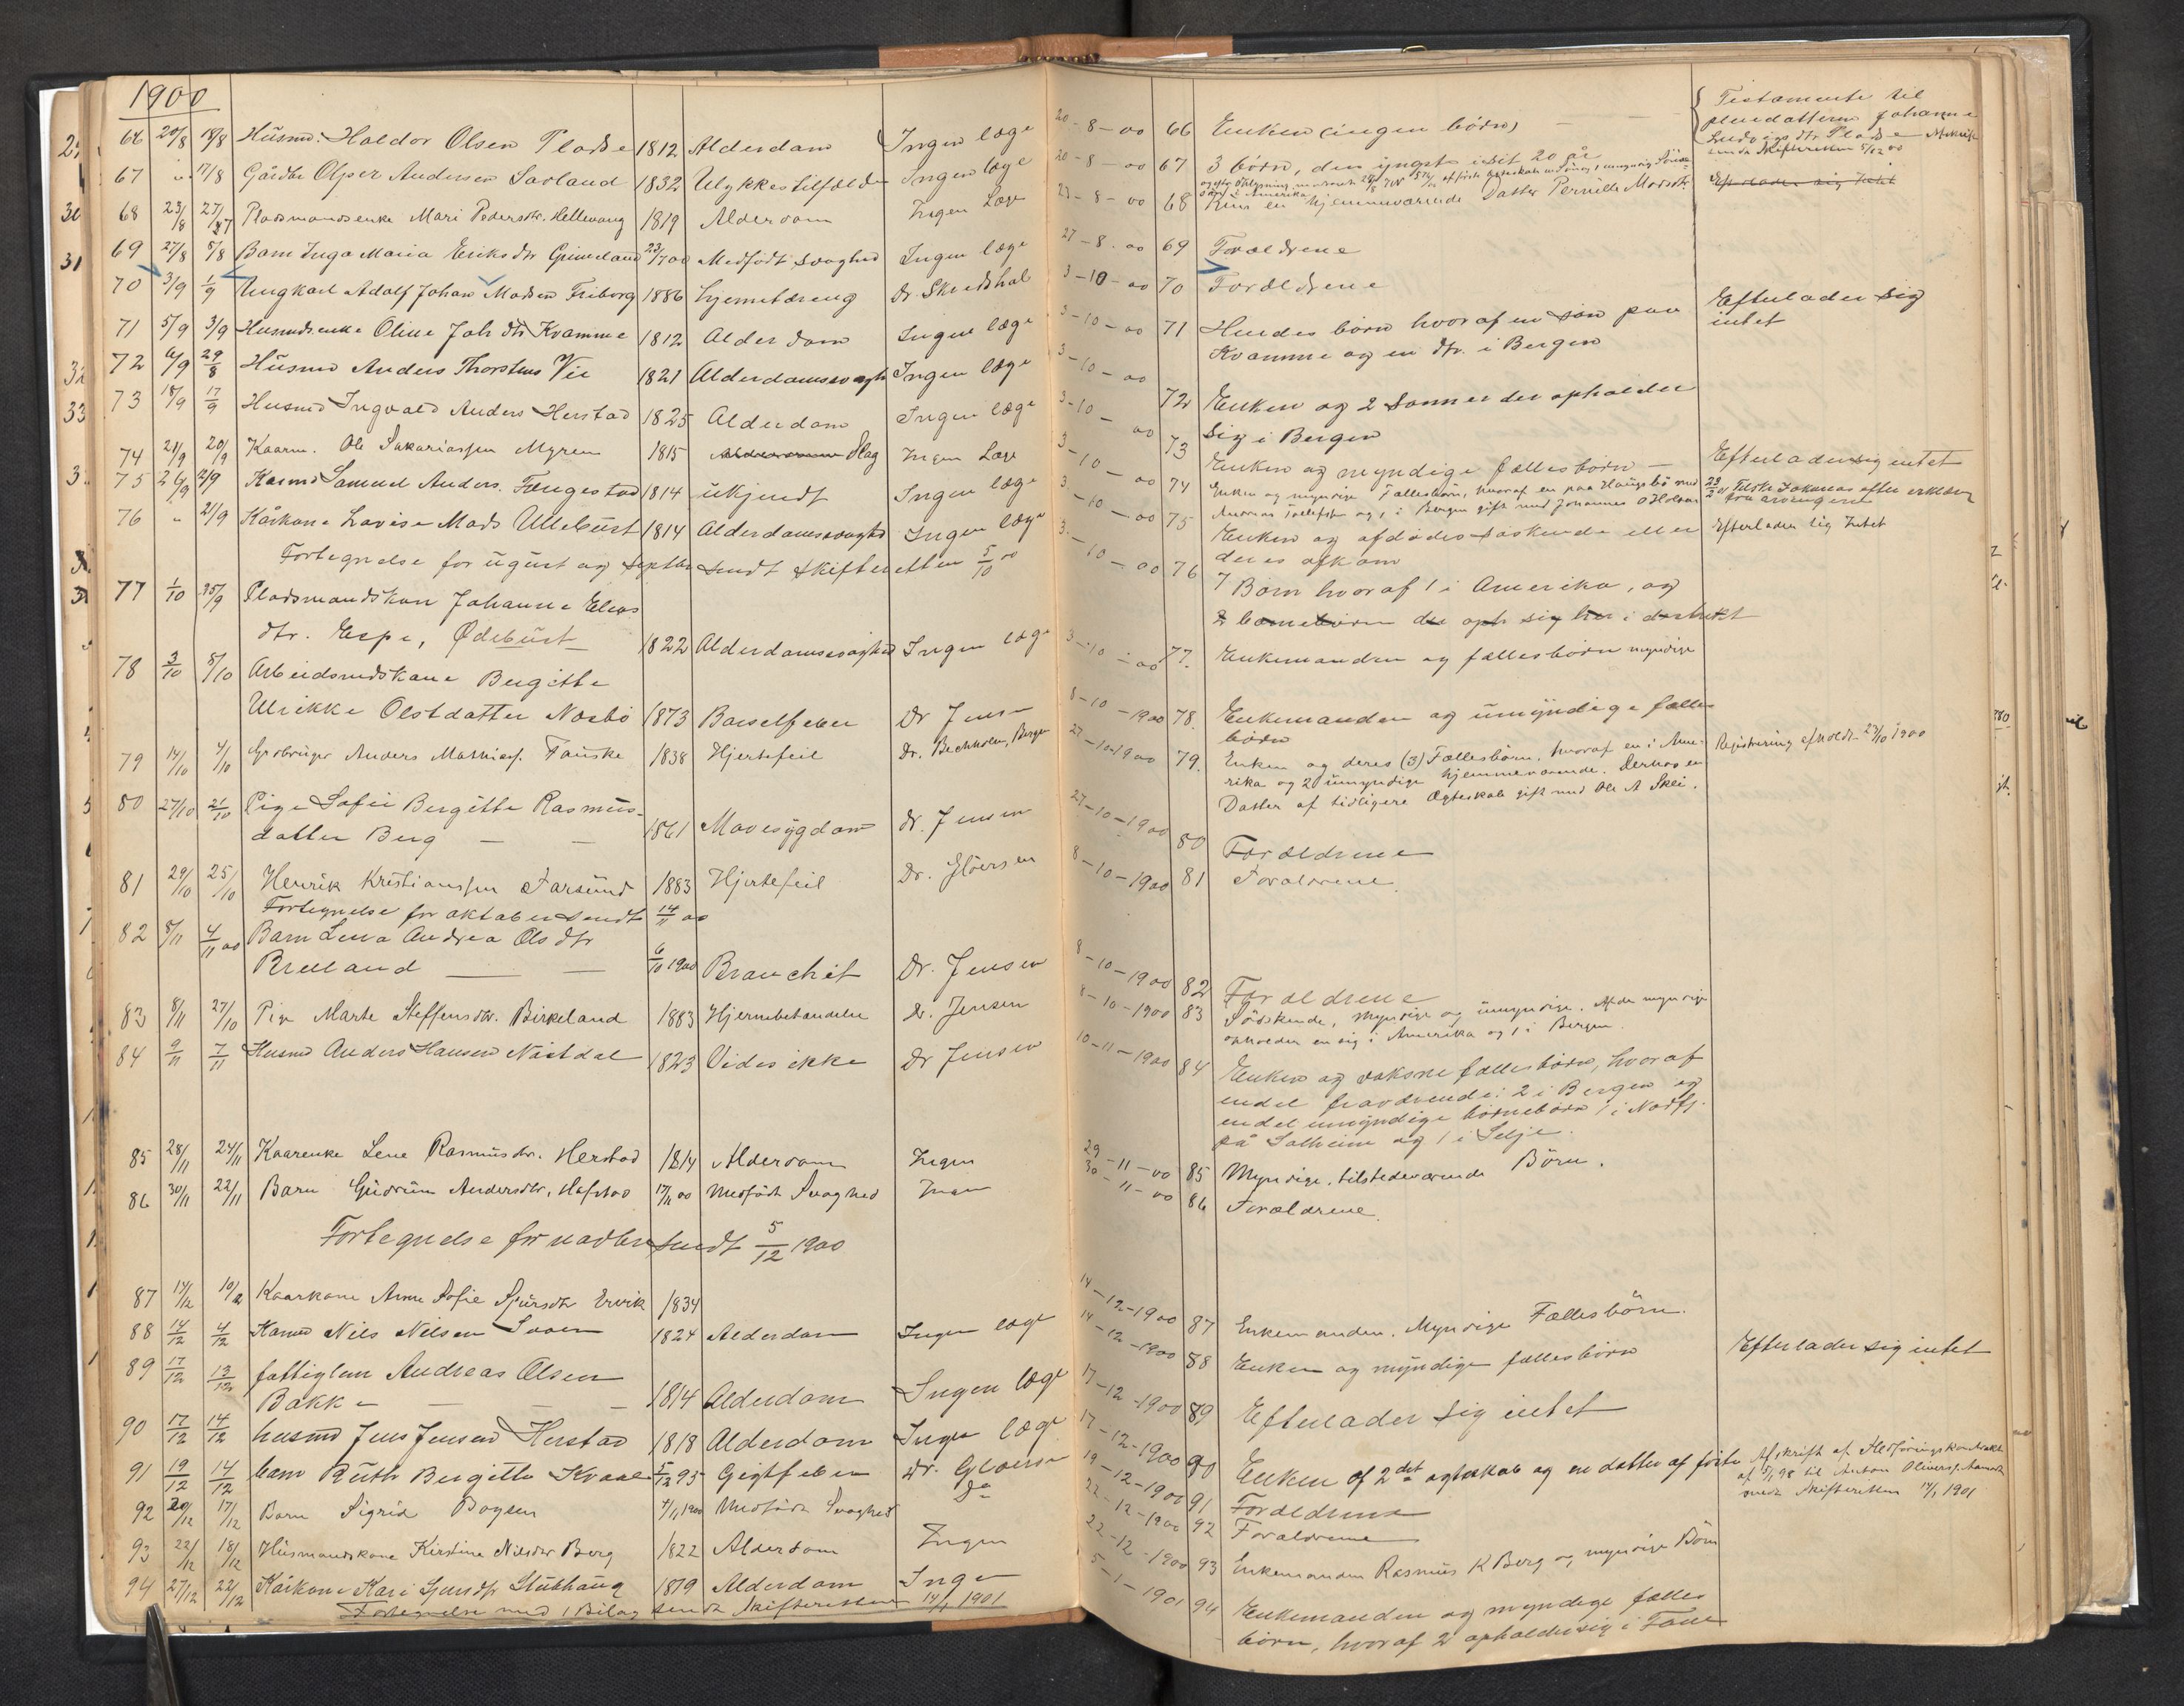 1900
66 20/8 18/8 Husmd. Haldor Olsen Pladse 1812 Alderdom Ingen læge
67 " 17/8 Gårdbr Olper Andersen Savland 1832 Ulykkestilfælde Ingen læge
68 23/8 27/7 Pladsmandsenke Mari Pedersdtr. Hellevang 1819 Alderdom Ingen Læge
69 27/8 5/8 Barn Inga Maria Eriksdtr Grimeland 23/7 00 Medfödt svaghed Ingen læge
70 3/9 1/9 Ungkarl Adolf Johan Madsen Friborg 1886 Hjernetæreng Dr. Skredshol
71 5/9 3/9 Husmdsenke Oline Joh dtr Kvamme 1812 Alderdom Ingen læge
72 6/9 29/8 Husmd Anders Thorstens Vie 1821 Alderdomssvagh Ingen læge
73 18/9 17/9 Husmd Ingvald Anders Herstad 1825 Alderdom Ingen læge
74 21/9 20/9 Kaarm. Ole Sakariassen Myren 1815 Slag Ingen Læge
75 26/9 21/9 Karmd Samuel Anders. Fængestad 1814 ukjendt Ingen læge
76 " 21/9 Kårkone Lovise Mads Ullebust 1814 Alderdomssvaghd Ingen læge
Fortegnelse for ugust og septbr sendt skifteretten 5/10 00
77 1/10 25/9 Pladsmandskon Johanne Elias
dtr. Espe, Ødebust 1822 Alderdomssvaghed Ingen læge
78 3/10 5/10 Arbeidsmdskone Bergitte
Ulrikke Olsdatter Nosbö 1873 Barselfeber Dr Jensen
79 14/10 4/10 Gårdbruger Anders Mathias. Fauske 1838 Hjertefeil Dr. Bechholm, Bergen
80 27/10 21/10 Pige Sofie Bergitte Rasmus-
datter Berg — — 1861 Mavesygdom dr. Jensen
81 29/10 25/10 Henrik Kristianssen Farsund 1883 Hjertefeil Dr. Gløersen
Fortegnelse for oktober sendt 14/11 00
82 8/11 4/11 00 Barn Lina Andrea Ols dtr
Breland — — 6/10 1900 Bronchit Dr. Jensen
83 8/11 27/10 Pige Marte Steffensdtr. Birkeland 1883 Hjernebetændelse Dr. Jensen
84 9/11 7/11 Husmd Anders Hansen Nåstdal 1823 Vides ikke Dr Jensen
85 28/11 24/11 Kaarenke Lene Rasmusdtr. Herstad 1814 Alderdom Ingen
86 30/11 22/11 Barn Gudrun Andersdtr, Hafstad 17/11 00 Medfödt Svaghed Ingen
Fortegnelse for novbr sendt 5/12 1900
87 14/12 10/12 Kaarkone Anne Sofie Sjursdtr Ervik 1834
88 14/12 4/12 Karmd Nils Nilsen 1824 Alderdom Ingen læge
89 17/12 13/12 fattiglem Andreas Olsen
Bakke — — — 1814 Alderdom Ingen læge
90 17/12 14/12 husmd Jens Jensen Herstad 1818 Alderdom Ingen læge
91 19/12 14/12 barn Ruth Bergitte Kvaale 5/12 95 Gigtfeber Dr. Gløersen
92 20/12 17/12 Barn Sigrid Boysen 4/11 1900 Medfödt Svaghed do
93 22/12 18/12 Husmandskone Kirstine Nilsdtr Berg 1822 Alderdom Ingen
94 27/12 22/12 Kårkone Kari Gjersdtr Stubhaug 1819 Alderdom Ingen
Fortegnelse med 1 Bilag sendt Skifteretten 14/1 1901
20-8-00 66 Enken (ingen börn) — —
Testamente til
pleiedatteren Johanne
Ludvigsdtr Pladse Afskrift
sendt Skifteretten 5/12 00
20-8-00 67 3 börn, den yngste i sit 20 år
23-8-00 68 Kun en hjemmeværende Datter Pernille Madsdtr. Efterlader sig Intet
27-8-00 69 Foræld­rene
3-10-00 70 Forældrene
3-10-00 71 Hendes börn hvoraf en sön paa
Kvamme og en dtr. i Bergen
Efterlader sig
intet
3-10-00 72 Enken og 2 Sönner der opholder
sig i Bergen
3-10-00 73 Enken og myndige fællesbörn — Efterlader sig intet
3-10-00 74 Enken og myndige Fællesbörn, hvoraf en paa Haugsbö med
Andreas Tollefsen og 1 i Bergen gift med Johannes O Holsen
3-10-00 75 Enken og afdødes söskende eller
deres afkom
Efterlader sig Intet
3-10-00 76 7 Börn hvoraf 1 i Amerika, og
2 barnebörn der oph sig her i distriktet
3-10-00 77. Enkemanden og fællesbörn myndige
8-10-1900 78. Enkemanden og umyndige fælles
börn
27-10-1900 79. Enken og deres (3) Fællesbörn, hvoraf en i Ame-
rika og 2 umyndige hjemmeværende. Derhos en
Datter af tidligere Ægteskab gift med Ole A Skei.
Registrering afholdt 23/10 1900
27-10-1900 80 Forældrene
8-10-1900 81 Forældrene.
8-10-1900 82 Forældrene
8-10-1900 83 Södskende, myndige og umyndige. Af de myndige
opholder en sig i Amerika og 1 i Bergen.
10-11-1900 84 Enken og voksne fællesbörn, hvoraf
endel fraværende: 2 i Bergen og
endel umyndige börnebörn 1 i Nordfj.
på Solheim og 1 i Selje.
29-11-00 85 Myndige, tilstedeværende Börn.
30-11-00 86 Forældrene.
14-12-1900 87 Enkemanden. Myndige Fællesbörn.
14-12-1900 88 Enken og myndige fællesbörn Efterlader sig intet
17-12-1900 89 Efterlader sig intet
17-12-1900 90 Enken af 2det ægteskab og en datter af förste
Afskrift af Hedföringskontrakt
af 5/1 98 til Anton Olivers.
sendt Skifteretten 14/1 1901
19-12-1900 91 Forældrene
22-12-1900 92 Forældrene
22-12-1900 93 Enkemanden Rasmus K Berg og myndige Börn
5-1-1901 94 Enkemanden og myndige fælles
börn, hvoraf 2 opholder sig i